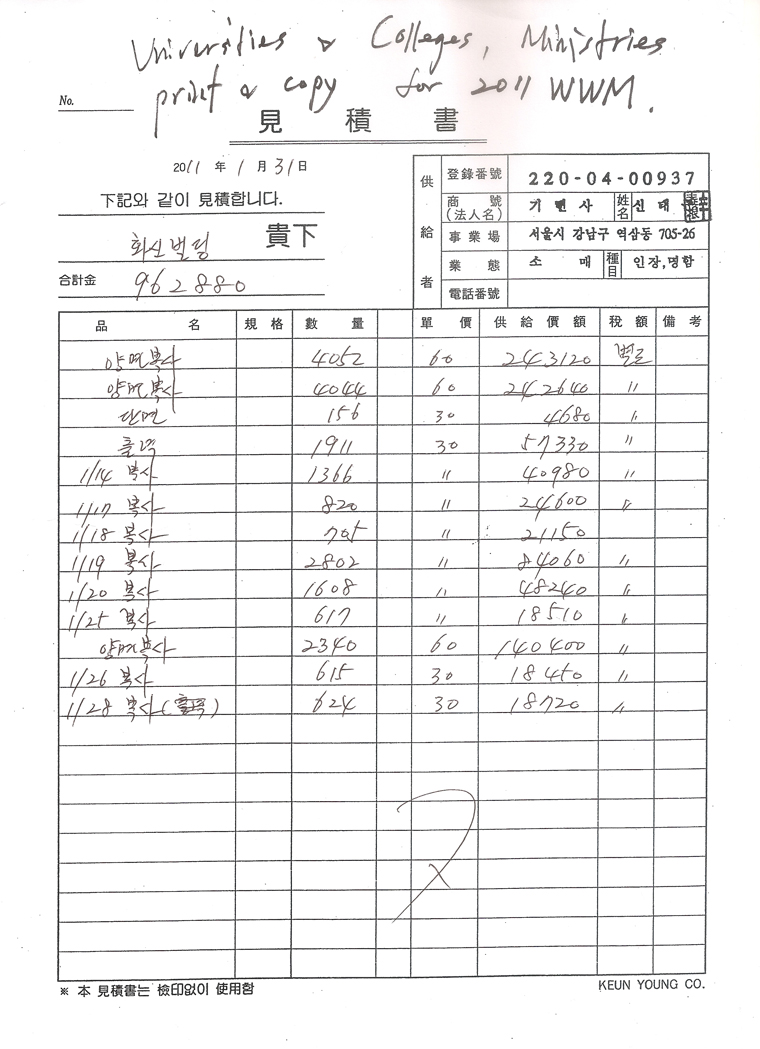 Universities & Colleges, Ministries
print & copy for 2011 WWM.
No.
見積書
2011 年 1 月 31 日
下記와 같이 見積합니다.
화신빌딩 貴下
合計金 962880
供給者
登錄番號 220-04-00937
商號(法人名) 기면사 姓名 신태
事業場 서울시 강남구 역삼동 705-26
業態 소매 種目 인장,명함
電話番號
品名 規格 數量 單價 供給價額 稅額 備考
양면복사 4052 60 243120 별도
양면복사 4044 60 242640 〃
단면 156 30 4680 〃
출력 1911 30 57330 〃
1/14 복사 1366 〃 40980 〃
1/17 복사 820 〃 24600 〃
1/18 복사 705 〃 21150
1/19 복사 2802 〃 84060 〃
1/20 복사 1608 〃 48240 〃
1/25 복사 617 〃 18510 〃
양면복사 2340 60 140400 〃
1/26 복사 615 30 18450 〃
1/28 복사(출력) 624 30 18720 〃
※ 本 見積書는 檢印없이 使用함
KEUN YOUNG CO.